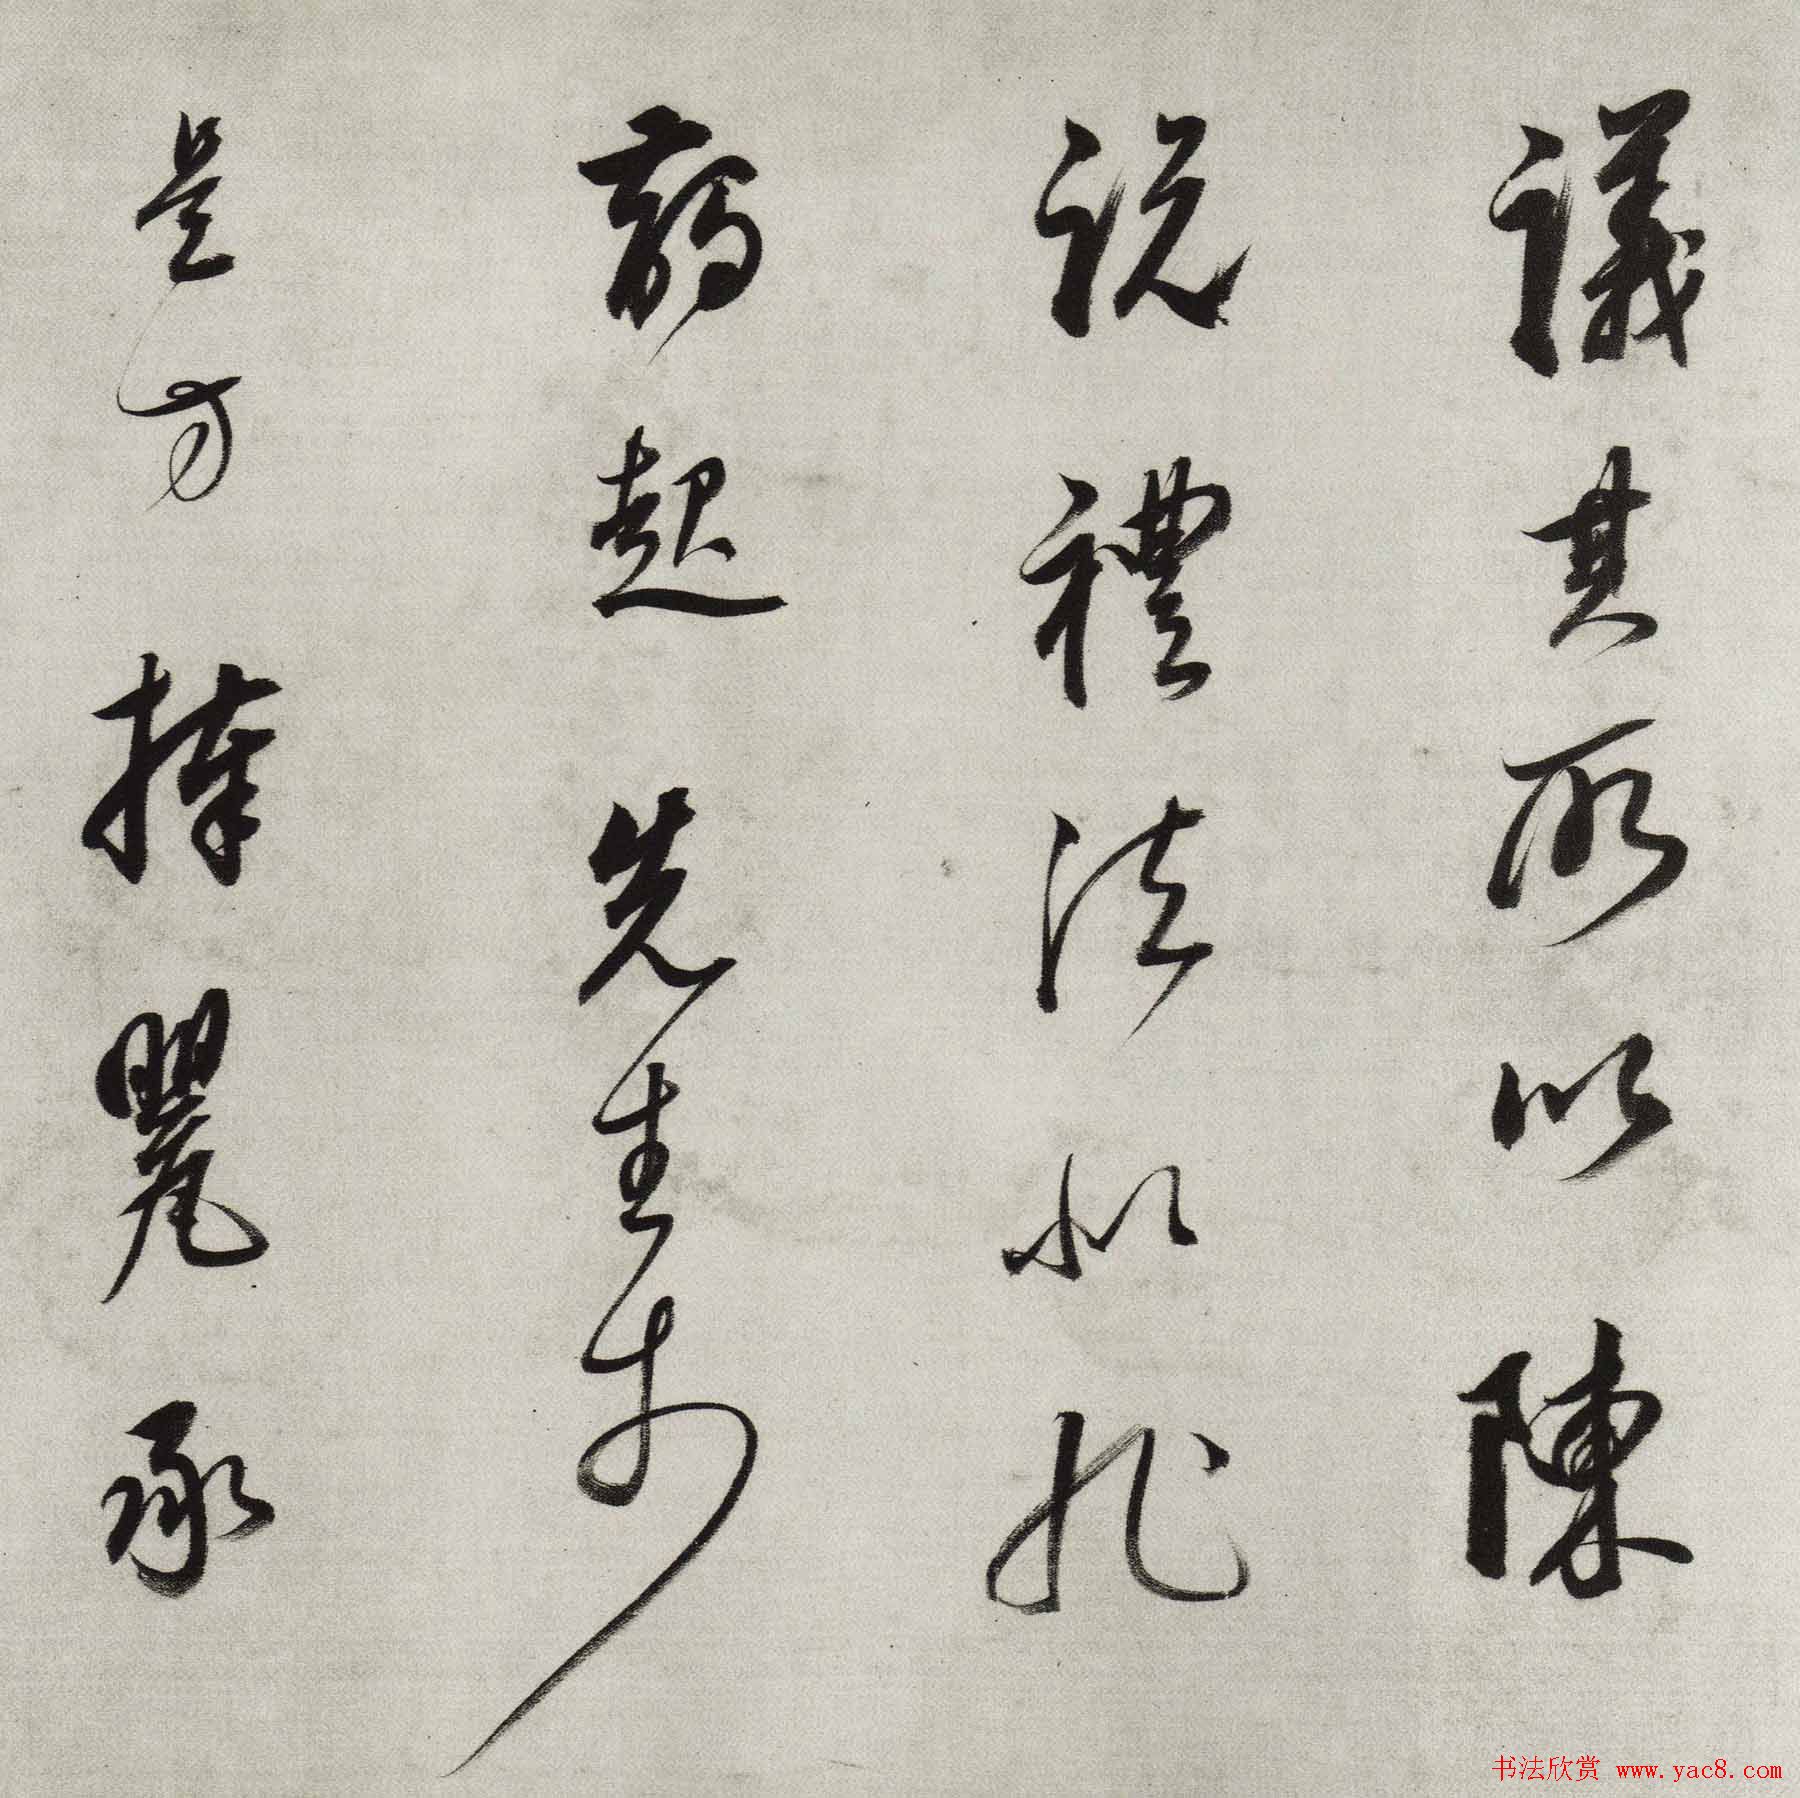 議其所以陳
說禮法似非
鏑起先生於
是方捧甖承
书法欣赏 www.yac8.com